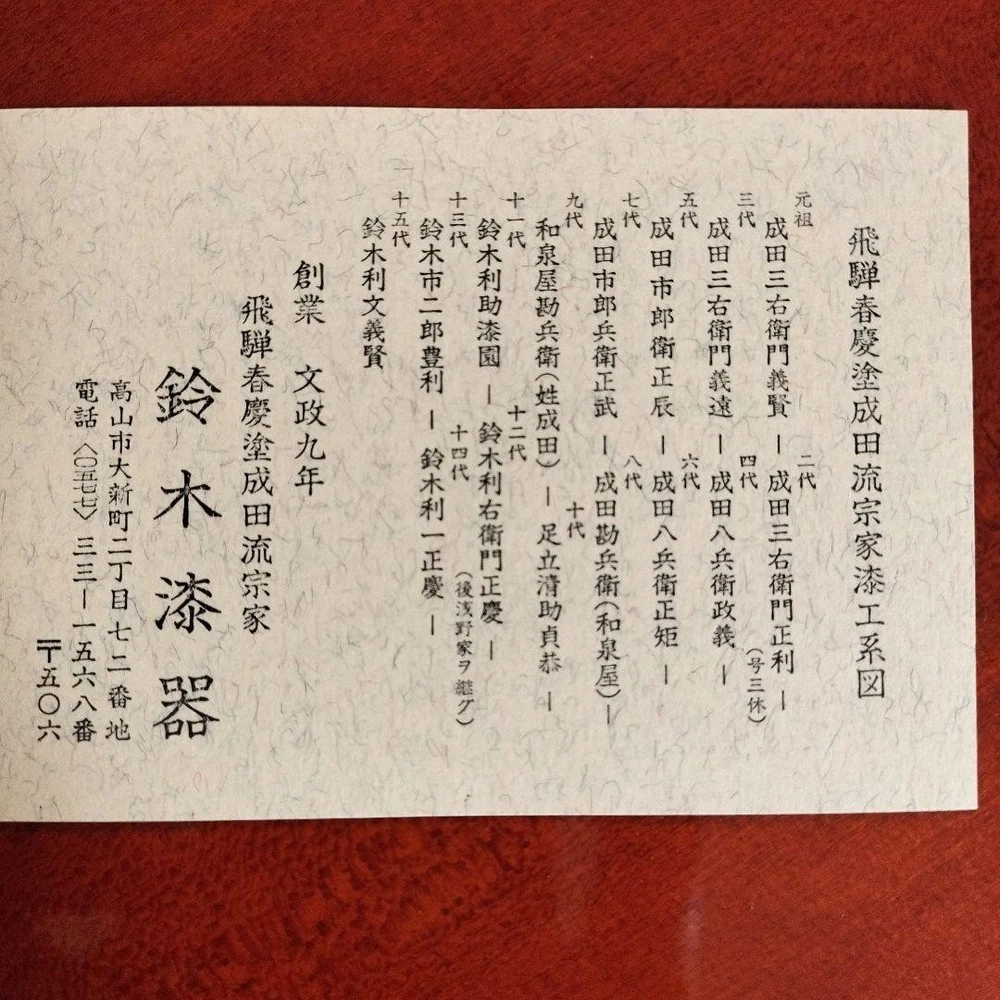 飛騨春慶塗成田流宗家漆工系図
元祖
成田三右衛門義賢―
二代
成田三右衛門正利―
(号三休)
三代
成田三右衛門義遠―
四代
成田八兵衛政義―
五代
成田市郎衛正辰―
六代
成田八兵衛正矩―
七代
成田市郎兵衛正武―
八代
成田勘兵衛(和泉屋)―
九代
和泉屋勘兵衛(姓成田)―
十代
足立清助貞恭―
十一代
鈴木利助漆園―
十二代
鈴木利右衛門正慶―
(後浅野家ヲ継グ)
十三代
鈴木市二郎豊利―
十四代
鈴木利一正慶―
十五代
鈴木利文義賢
創業 文政九年
飛騨春慶塗成田流宗家
鈴木漆器
高山市大新町二丁目七二番地
電話〈〇五七七〉三三―一五六八番
〒五〇六